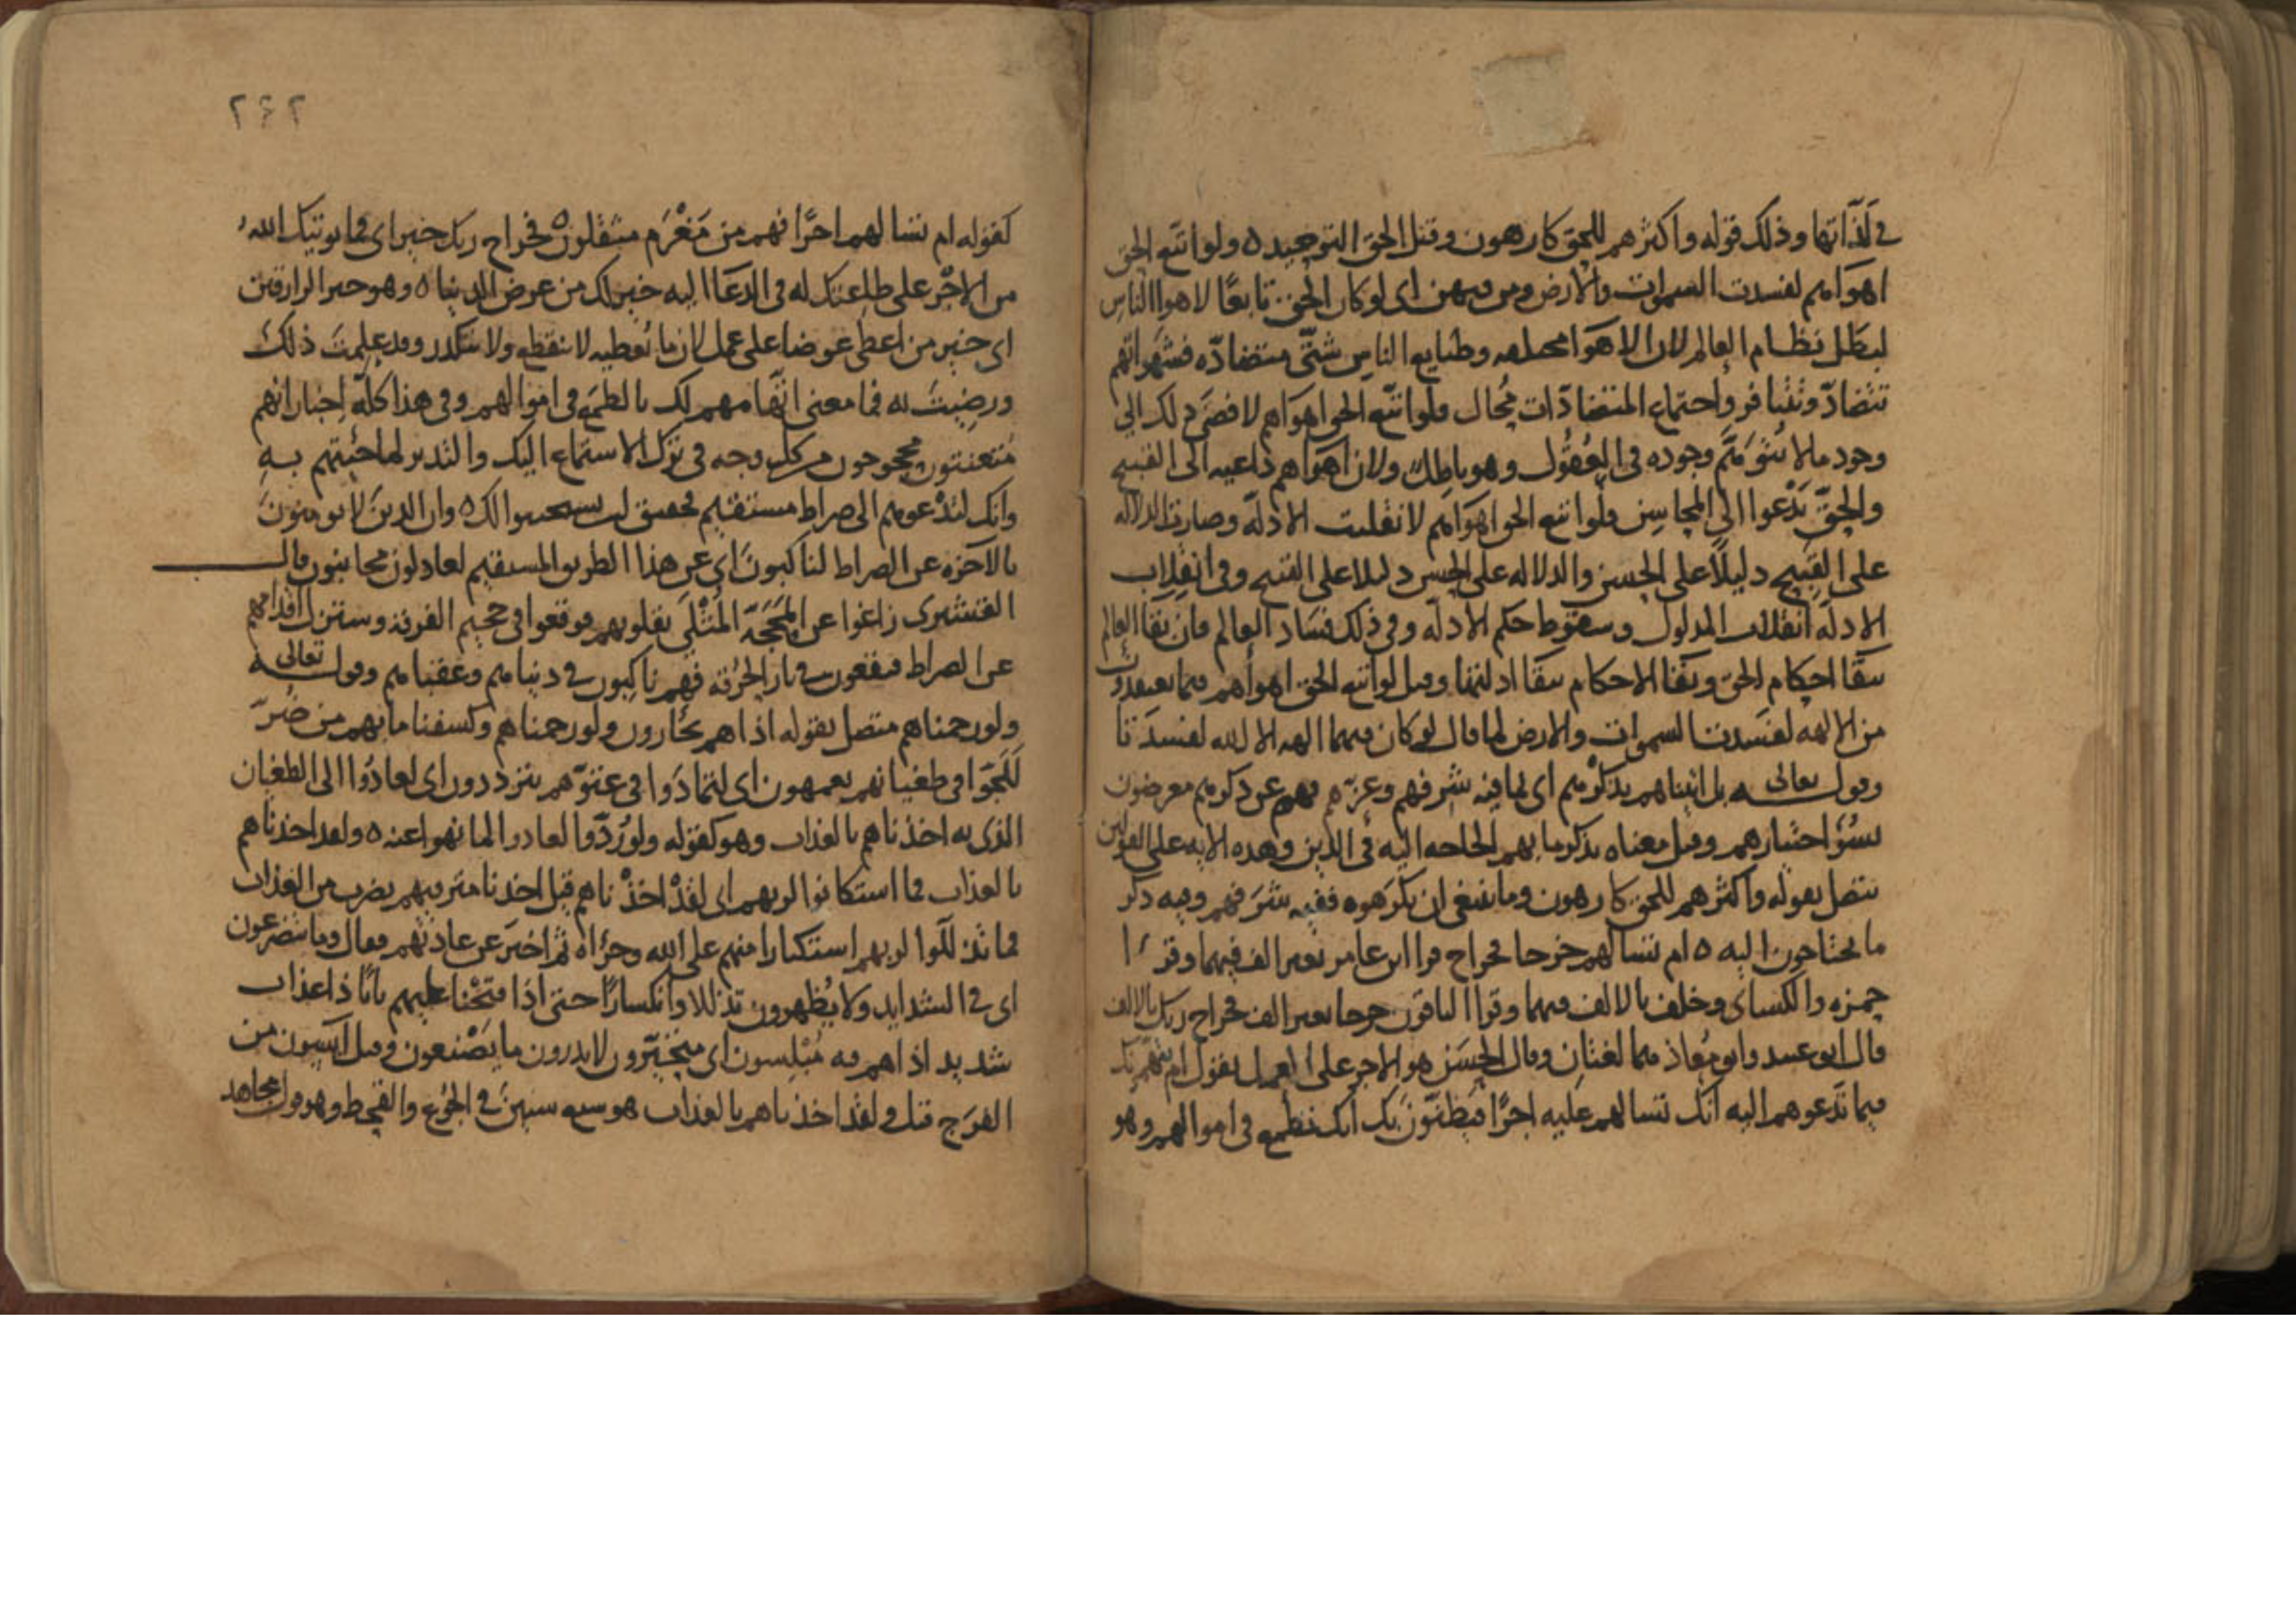 في لذاتها وذلك قوله واكثرهم للحق كارهون وقيل الحق التوحيد ٥ ولو اتبع الحق
اهواهم لفسدت السموات والارض ومن فيهن اى لو كان الحق تابعًا لاهوا الناس
لبطل نظام العالم لان الاهوا مختلفه وطبايع الناس شتّى متضادّه فشهواتهم
تتضادّ وتتنافر واجتماع المتضادّات مُحال فلو اتبع الحق اهواهم لافضى ذلك الي
وجود ما لا يُتوَهَّم وجوده في العُقُول وهو باطل ولان اهواهم داعيه الى القبيح
والحقّ يَدْعوا الي المحاسِن فلو اتبع الحق اهواهم لانقلبت الادلّه وصارت الدلاله
على القبيح دليلًا على الحسن والدلاله على الحسن دليلا على القبيح وفي انقلاب
الادلّه انقلاب المدلول وسقوط حكم الادله وفي ذلك فساد العالم فان بقا العالم
ببقا احكام الحق وبقا الاحكام ببقا ادلتها وقيل لو اتبع الحق اهواهم فيما يعتقدون
من الالهه لفسدت السموات والارض كما قال لو كان فيهما الهه الا الله لفسدتا
وقوله تعالى بل اتيناهم بذكرهم اى بما فيه شرفهم وعزّهم فهم عن ذكرهم معرضون
بسُوّ اختيارهم وقيل معناه بذكر ما بهم الحاجه اليه في الدين وهذه الايه على القولين
تتصل بقوله واكثرهم للحق كارهون وما ينبغي ان يكرهوه ففيه شرفهم وفيه ذكر
ما يحتاجون اليه ٥ ام تسالهم خرجا فخراج قرا ابن عامر بغير الف فيهما وقرا
حمزه والكساى وخلف بالالف فيهما وقرا الباقون خرجا بغير الف فخراج ربك بالالف
قال ابو عبيد وابو مُعاذ هما لغتان وقال الحسن هو الاجر على العمل يقول ام يتهمونك
فيما تَدعوهم اليه انك تسالهم عليه اجرًا فيظنّون بك انك تطمع في اموالهم وهو
٢٤٢
كقوله ام تسالهم اجرًا فهم من مَغْرَم مثقلون ٥ فخراج ربك خير اى فما يوتيك الله
من الاجْر على طاعتك له في الدعا اليه خير لك من عرض الدنيا ٥ وهو خير الرازقين
اى خير من اعطى عوضا على عمل لان ما يُعطيه لا ينقطع ولا يتكدر وقد علمتَ ذلك
ورضيتَ به فما معنى اتّهامهم لك بالطمَع في اموالهم وفي هذا كلّه اخبار انهم
مُتعنتون محجوجون من كل وجه في ترك الاستماع اليك والتدبر لما جيتهم به
وانك لتدْعوهم الى صراط مستقيم فحقيق ان يستجيبوا لك ٥ وان الذين لا يومنون
بالاخره عن الصراط لناكبون اي عن هذا الطريق المستقيم لعادلون مجانبون قال
القشيرى زاغوا عن المحَجَّه المُثْلَي بقلوبهم فوقعوا في جحيم الفرقة وستزل اقدامهم
عن الصراط فيقعون في نار الحُرقه فهم ناكبون في دنياهم وعقباهم وقوله تعالى
ولو رحمناهم متصل بقوله اذا هم يجأرون ولو رحمناهم وكشفنا ما بهم من ضُرّ
لَلَجّوا في طغيانهم يعمهون اى لتمادَوا في عتوّهم يتردّدون اى لعادُوا الى الطغيان
الذى به اخذناهم بالعذاب وهو كقوله ولو رُدّوا لعادوا لما نهوا عنه ٥ ولقد اخذناهم
بالعذاب فما استكانوا لربهم اى لقدْ اخذْناهم قبل اخذنا مترفيهم بضرب من العذاب
فما تذللوا لربهم استكبارا منهم على الله وجراه ثم اخبر عن عادتهم فقال وما يتضرعون
اى في الشدايد ولا يُظهرون تذللا وانكسارًا حتى اذا فتحْنا عليهم بابًا ذا عذاب
شديد اذا هم فيه مُبْلِسون اى متحيّرون لا يدرون ما يصْنعون وقيل آيسون من
الفرَج قيل ولقد اخذناهم بالعذاب هو سبع سنين في الجوع والقحط وهو قول مجاهد